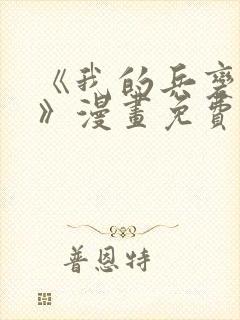 《我的兵
》漫畫免費
普恩特